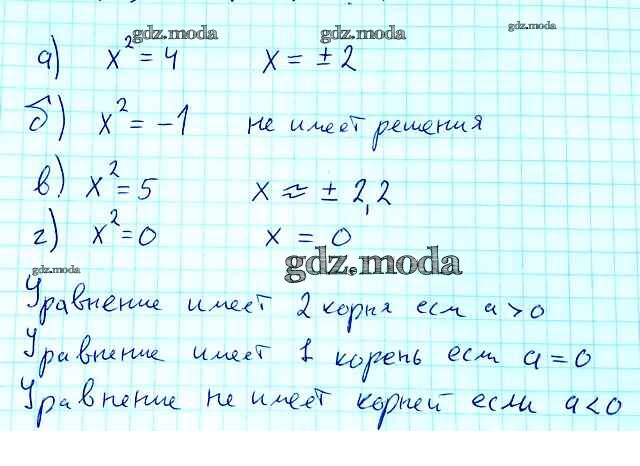 gdz.moda gdz.moda gdz.moda
а) x² = 4 x = ± 2
б) x² = -1 не имеет решения
в) x² = 5 x ≈ ± 2,2
г) x² = 0 x = 0
gdz.moda gdz.moda
Уравнение имеет 2 корня есм a > 0
Уравнение имеет 1 корень если a = 0
Уравнение не имеет корней если a < 0